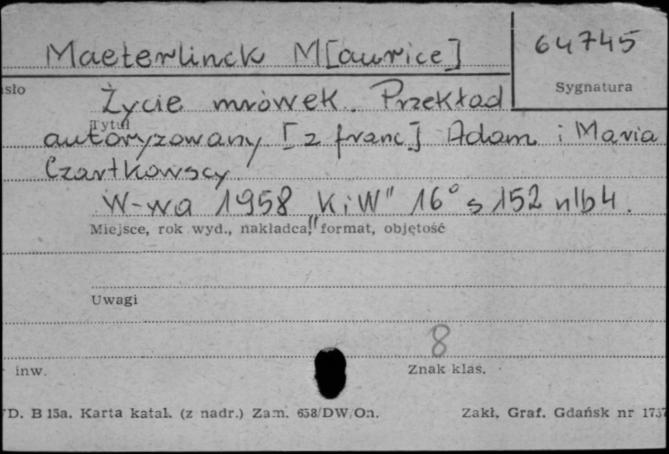 Maeterlinck M[aurice]
64745
Sygnatura
Życie mrówek. Przekład
Tytuł
autoryzowany [z franc.] Adam i Maria
Czartkowscy.
W-wa 1958 „KiW" 16° s 152 nlb 4.
Miejsce, rok wyd., nakładca, format, objętość
Uwagi
8
inw.
Znak klas.
D. B 15a. Karta katal. (z nadr.) Zam. 658/DW/On.
Zakł. Graf. Gdańsk nr